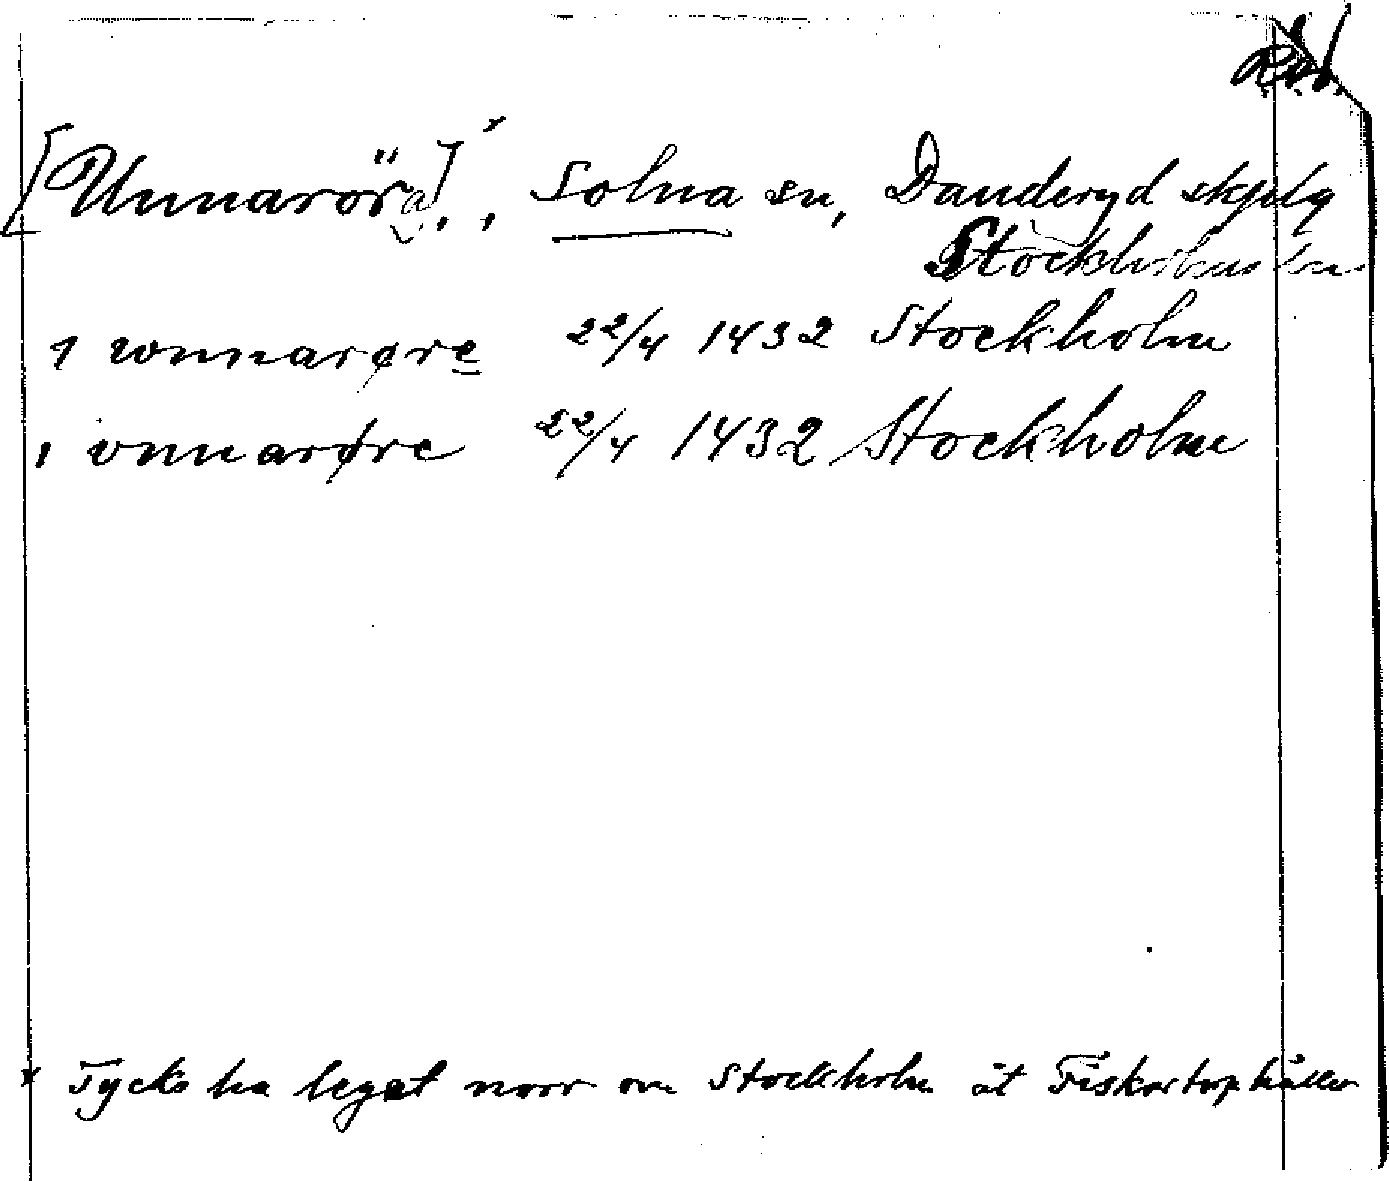 [Unnaröra]ˣ, Solna sn, Danderyd skplg
Stockholms län
ı wnnarøre 22/4 1432 Stockholm
ı vnnarøre 22/4 1432 Stockholm
x Tycks ha legat norr om Stockholm åt Fiskartorphållet